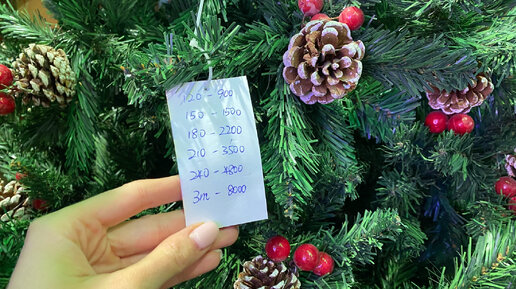 120 - 900
150 - 1500
180 - 2200
210 - 3500
240 - 4800
3m - 8000